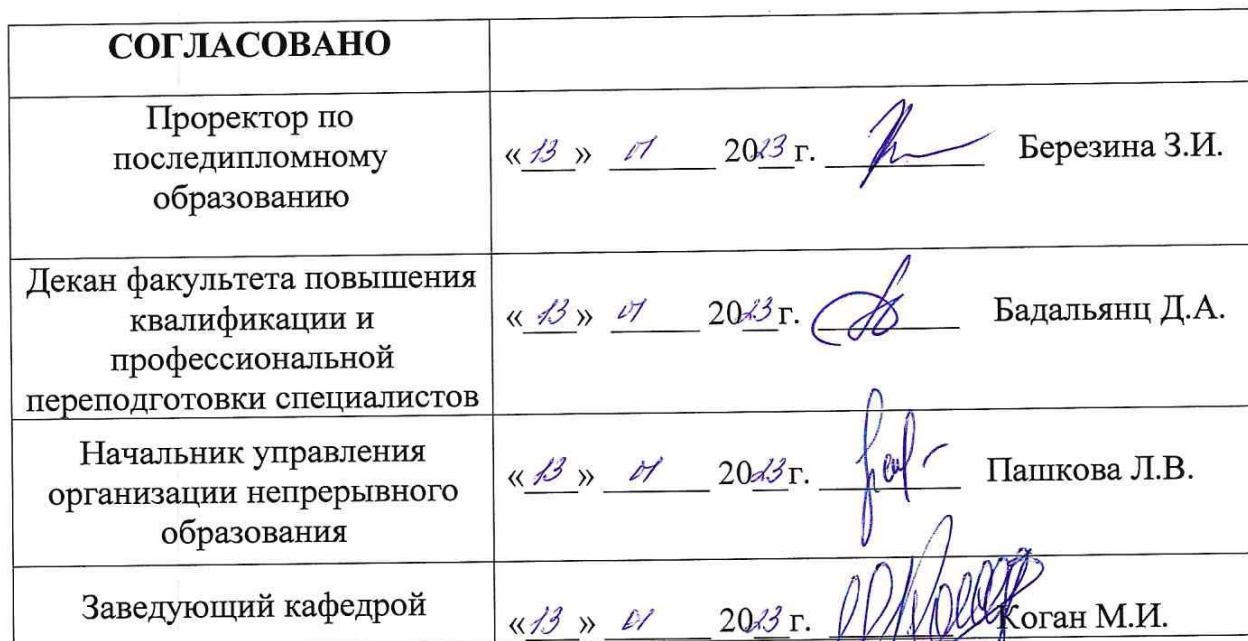 СОГЛАСОВАНО
Проректор по
последипломному
образованию
«13» 01 2023г. Березина З.И.
Декан факультета повышения
квалификации и
профессиональной
переподготовки специалистов
«13» 01 2023г. Бадальянц Д.А.
Начальник управления
организации непрерывного
образования
«13» 01 2023г. Пашкова Л.В.
Заведующий кафедрой
«13» 01 2023г. Коган М.И.